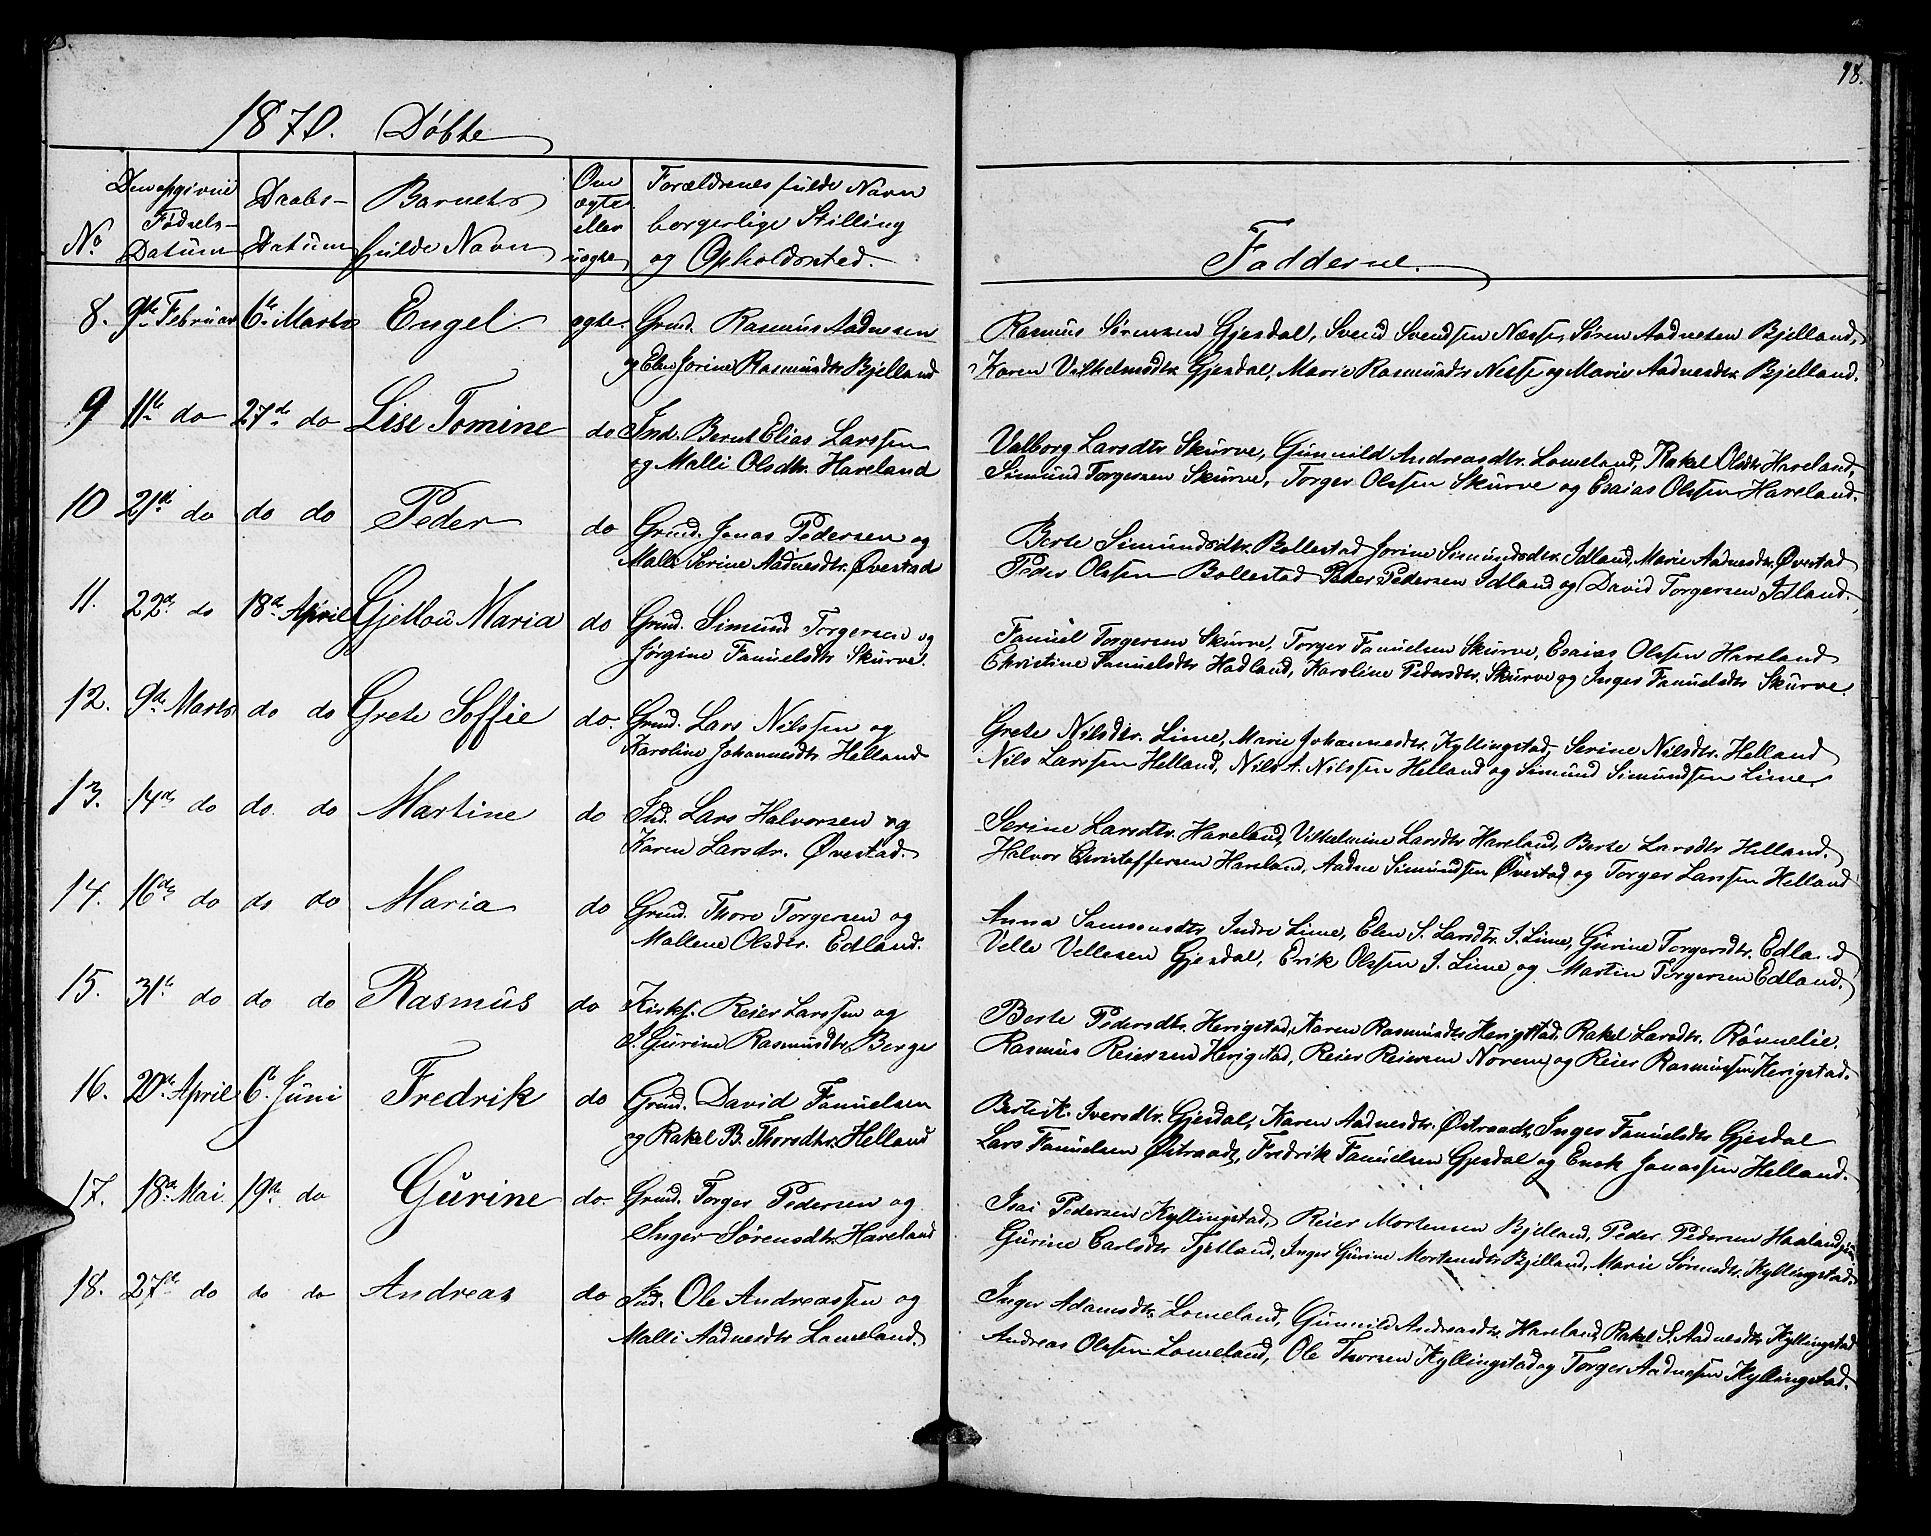 98.
1870. Døbte
No
Den opgivne Fødsels-Datum
Daabs-Datum
Barnets fulde Navn
Om ægte eller uægte
Forældrenes fulde Navn borgerlige Stilling og Opholdssted.
Fadderne.
8. 9de Februar 6te Marts Engel ægte. Grmd. Rasmus Aadnesen
og Elen Jorine Rasmusdtr Bjelland
Rasmus Sørensen Gjesdal, Svend Svendsen Næsse, Søren Aadnesen Bjelland,
Karen Vilhelmsdtr. Gjesdal, Marie Rasmusdtr Nesse og Marie Aadnesdtr. Bjelland.
9 11te do 27de do Lise Tomine do Ind. Bernt Elias Larssen
og Malli Olsdtr. Haveland
Valborg Larsdtr Skurve, Gunnild Andreasdtr. Lomeland, Rakel Olsdtr Haveland,
Simund Torgersen Skurve, Torger Olssen Skurve og Esaias Olssen Haveland.
10 21de do do do Peder do Grmd. Jonas Pedersen og
Malli Serine Aadnesdtr. Øvestad
Berte Simundsdtr. Bollestad Jorine Simundsdtr. Idland, Marie Aadnesdtr. Øvestad
Peder Olssen Bollestad Peder Pedersen Idland og David Torgersen Idland.
11. 22de do 18de April Gjellou Maria do Grmd. Simund Torgersen og
Jørgine Fanuelsdtr Skurve.
Fanuel Torgersen Skurve, Torger Fanuelsen Skurve, Esaias Olssen Haveland
Christine Fanuelsdtr Hadland, Karoline Pedersdtr. Skurve og Inger Fanuelsdtr Skurve.
12. 9de Marts do do Grete Soffie do. Grmd. Lars Nilssen og
Karoline Johannesdtr Helland
Grete Nilsdtr. Lime, Marie Johannesdtr. Kyllingstad, Serine Nilsdtr. Helland
Nils Larssen Helland, Nils A. Nilssen Helland og Simund Simundsen Lime.
13. 14de do do. do Martine do Ind. Lars Halvorsen og
Karen Larsdr. Øvestad.
Serine Larsdtr. Haveland, Vilhelmine Larsdtr Haveland, Berte Larsdtr Helland.
Halvor Christoffersen Haveland, Aadne Simundsen Øvestad og Torger Larssen Helland
14. 16de do do do Maria do Grmd. Thore Torgersen og
Mallene Olsdtr. Edland.
Anna Samsonsdtr Indre Lime, Elen S. Larsdtr. I. Lime, Gurine Torgersdtr. Edland
Velle Vellesen Gjesdal, Erik Olssen I. Lime og Martin Torgersen Edland.
15. 31te do do do Rasmus do Kirks. Reier Larssen og
I. Gurine Rasmusdtr Berge
Berte Pedersdtr. Herigstad, Karen Rasmusdtr Herigstad, Rakel Larsdtr. Rønnelie.
Rasmus Reiersen Herigstad, Reier Reiersen Norem og Reier Rasmussen Herigstad.
16. 20de April 6te Juni Fredrik do Grmd. David Fanuelsen
og Rakel B. Thorsdtr. Helland
Berte K. Iversdtr. Gjesdal, Karen Aadnesdtr. Østraadt, Inger Fanuelsdtr Gjesdal
Lars Fanuelsen Østraadt, Fredrik Fanuelsen Gjesdal og Enok Jonassen Helland.
17. 18de Mai 19de do Gurine do. Grmd. Torger Pedersen og
Inger Sørensdtr. Haveland
Isai Pedersen Kyllingstad, Reier Mortensen Bjelland, Peder Pedersen Haaland,
Gurine Carlsdtr Tjetland, Inger Gurine Mortensdtr Bjelland, Marie Sørensdtr. Kyllingstad.
18. 27de do do do Andreas do Ind. Ole Andreassen og
Malli Aadnesdtr Lomeland.
Inger Adamsdtr. Lomeland, Gunnild Andreasdtr Haveland, Rakel S. Aadnesdtr Kyllingstad
Andreas Olssen Lomeland, Ole Thorsen Kyllingstad og Torger Aadnesen Kyllingstad.